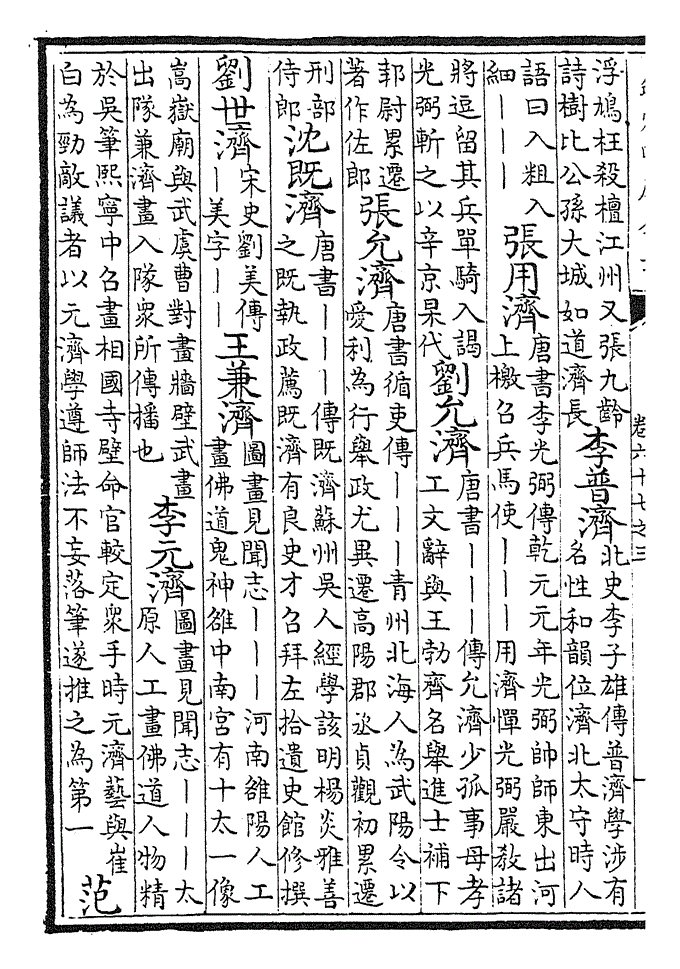 卷六十七之三
浮鳩枉殺檀江州又張九齡
詩樹比公孫大城如道濟長
李普濟
北史李子雄傳普濟學涉有
名性和韻位濟北太守時人
語曰入粗入
細———
張用濟
唐書李光弼傳乾元元年光弼帥師東出河
上檄召兵馬使———用濟憚光弼嚴教諸
將逗留其兵單騎入謁
光弼斬之以辛京杲代
劉允濟
唐書———傳允濟少孤事母孝
工文辭與王勃齊名舉進士補下
邽尉累遷
著作佐郎
張允濟
唐書循吏傳———青州北海人為武陽令以
愛利為行舉政尤異遷高陽郡丞貞觀初累遷
刑部
侍郎
沈既濟
唐書———傳既濟蘇州吳人經學該明楊炎雅善
之既執政薦既濟有良史才召拜左拾遺史館修撰
劉世濟
宋史劉美傳
—美字——
王兼濟
圖畫見聞志———河南雒陽人工
畫佛道鬼神雒中南宮有十太一像
嵩嶽廟與武虞曹對畫牆壁武畫
出隊兼濟畫入隊衆所傳播也
李元濟
圖畫見聞志———太
原人工畫佛道人物精
於吳筆熙寧中召畫相國寺壁命官較定衆手時元濟藝與崔
白為勁敵議者以元濟學遵師法不妄落筆遂推之為第一
范